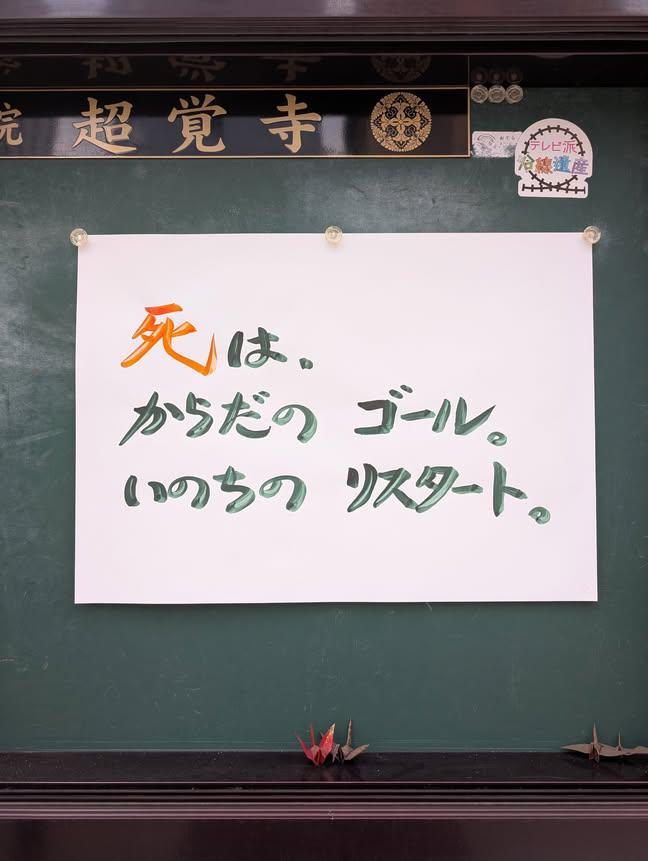 院 超覚寺
テレビ派
沿線遺産
死は、
からだの ゴール。
いのちの リスタート。